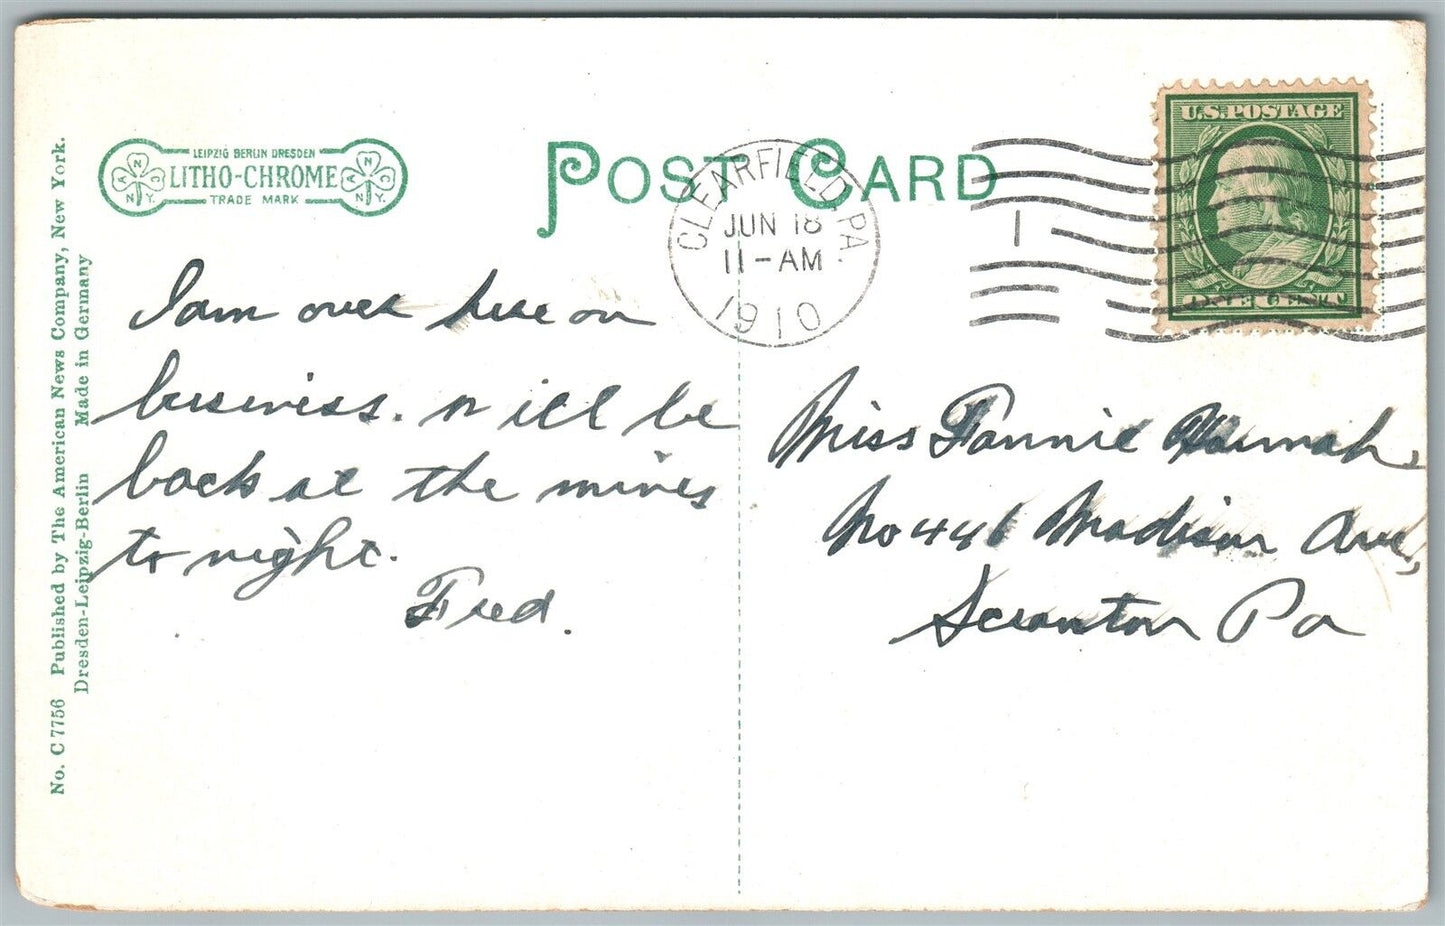 No. C 7756 Published by The American News Company, New York.
Dresden-Leipzig-Berlin Made in Germany
LEIPZIG BERLIN DRESDEN
LITHO-CHROME
TRADE MARK
ANC
N.Y.
ANC
N.Y.
POST CARD
CLEARFIELD, PA.
JUN 18
11-AM
1910
1
U.S. POSTAGE
ONE CENT
I am over here on
business. will be
back at the mines
to night.
Fred.
Miss Fannie Hannah
No 446 Madison Ave,
Scranton Pa